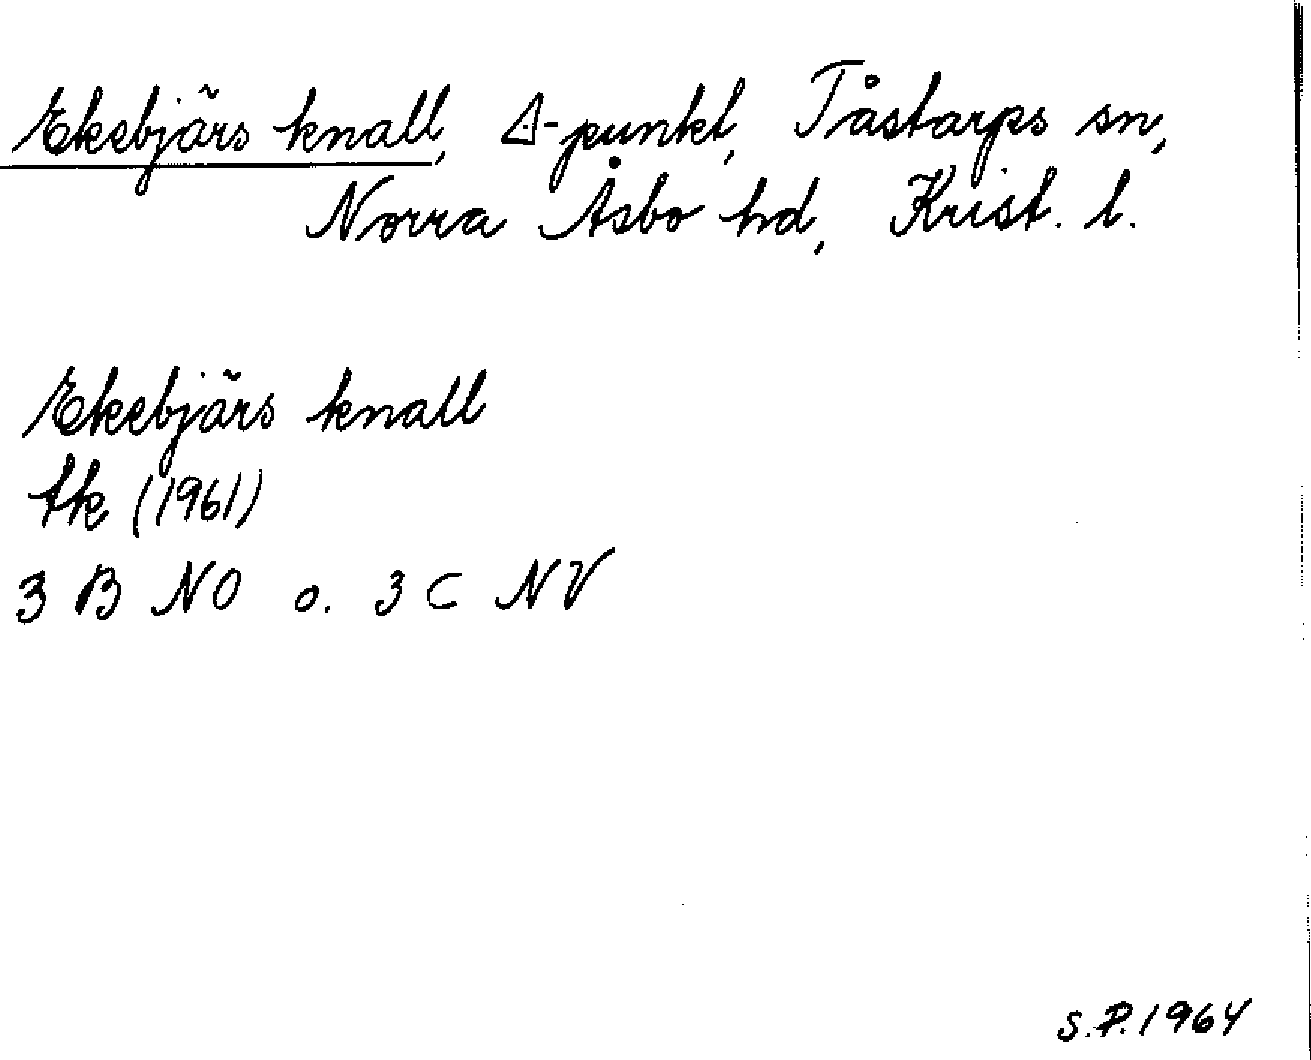 Ekebjärs knall, Δ-punkt, Tåstarps sn,
Norra Åsbo hd, Krist. l.
Ekebjärs knall
tk (1961)
3 B NO o. 3 C NV
S.P. 1964